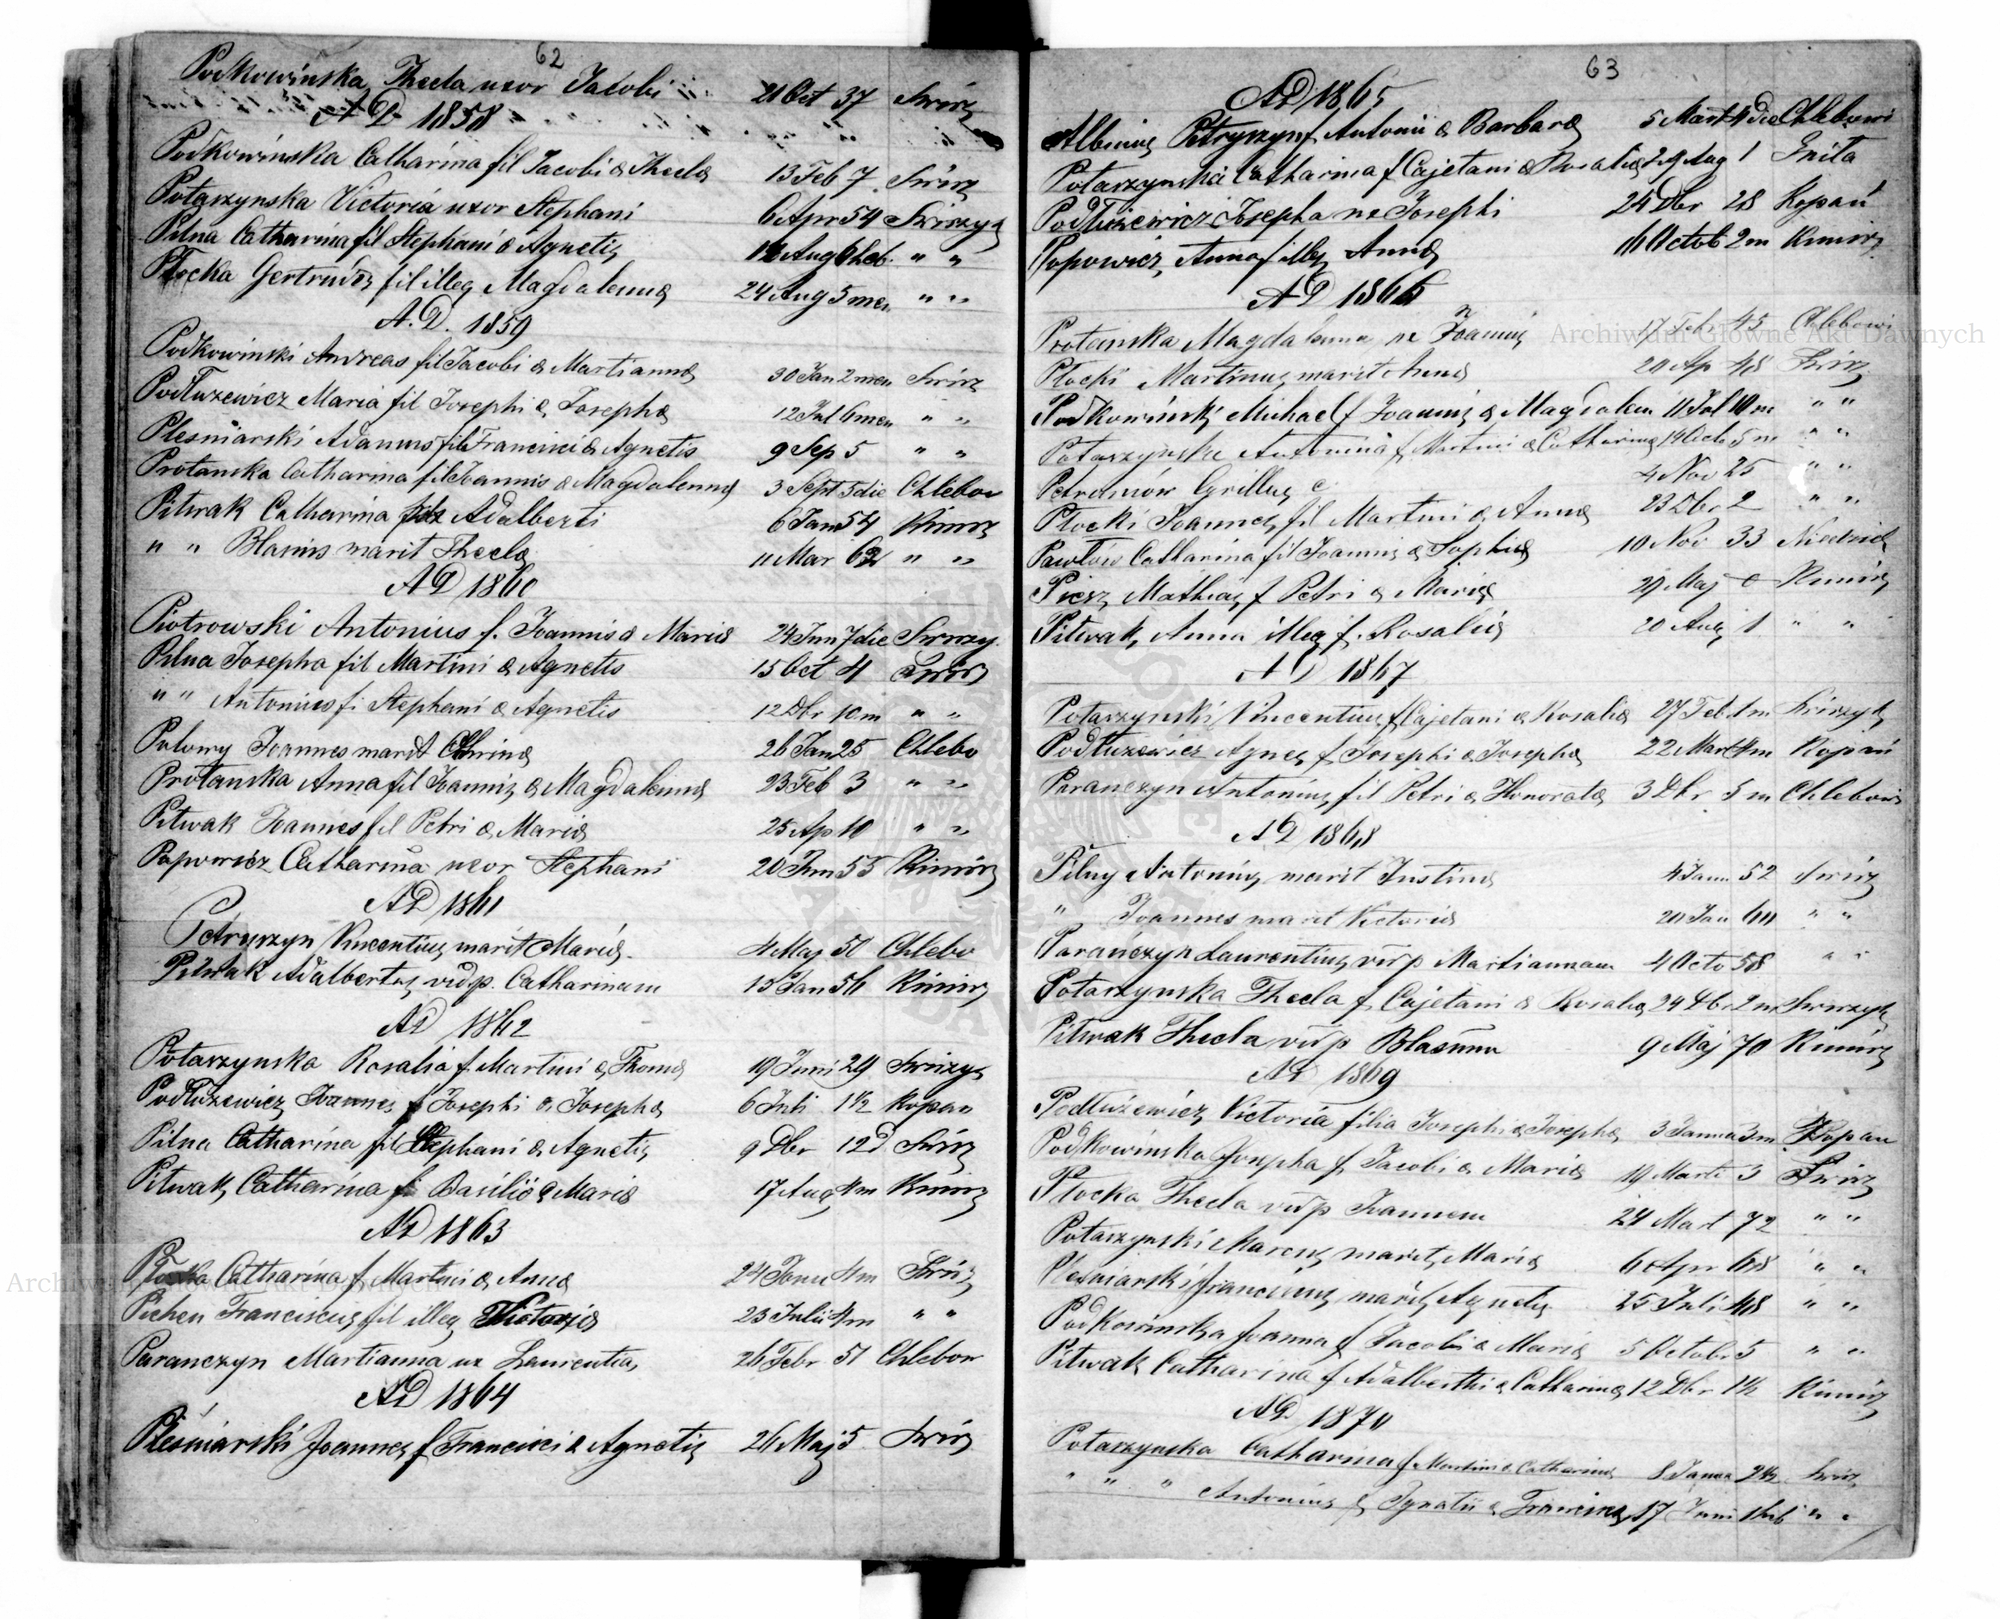 62
Podkowińska Thecla uxor Jacobi 21 Oct 37 Swirz
A D 1858
Podkowińska Catharina fil Jacobi & Theclæ 13 Feb 7 Swirz
Potarzynska Victoria uxor Stephani 6 Apr 54 Swirzyk
Pilna Catharina fil Stephani & Agnetis Aug 6 heb " "
Płocka Gertrudis fil illeg Magdalenæ 24 Aug 5 men " "
A.D. 1859
Podkowinski Andreas fil Jacobi & Martiannæ 30 Jan 2 men Swirz
Podłuzewicz Maria fil Josephi & Josephæ 12 Jul 6 men " "
Plesniarski Adamus fil Francisci & Agnetis 9 Sep 5 " "
Protanska Catharina fil Joannis & Magdalennæ 3 Sept 5 die Chlebow
Pitwak Catharina Adalberti 6 Jan 54 Kimirz
" " Blasius marit Theclæ 11 Mar 62 " "
A D 1860
Piotrowski Antonius f. Joannis & Mariæ 24 Jun 7 die Swirzy.
Pilna Josepha fil Martini & Agnetis 15 Oct 4 Swirz
" " Antonius fi Stephani & Agnetis 12 Dbr 10 m " "
Polowy Joannes marit 26 Jan 25 Chlebo
Protanska Anna fil Joannis & Magdalennæ 23 Feb 3 " "
Pitwak Joannes fil Petri & Mariæ 25 Ap 10 " "
Popowicz Catharina uxor Stephani 20 Jun 55 Kimirz
A D 1861
Petryszyn Vincentius marit Mariæ. 4 Maj 50 Chlebo
Pitwak Adalbertus vid p. Catharinam 15 Jan 56 Kimirz
A D 1862
Potarzynska Rosalia f. Martini & Thomæ 19 Juni 29 Swirzyk
Podłuzewicz Joannes f Josephi & Josephæ 6 Juli 1½ Kopan
Pilna Catharina fil Stephani & Agnetis 9 Dbr 12 d Swirz
Pitwak Catharina fi Basilii & Mariæ 17 Aug 4 m Kimirz
A D 1863
Płocka Catharina f Martini & Annæ 24 Janu 4 m Swirz
Pichen Franciscus fil illeg Victoriæ 23 Julii 4 m " "
Paranczyn Martianna ux Laurentia 26 Febr 51 Chlebow
A D 1864
Pleśniarski Joannes f Francisci & Agnetis 26 Maj 5 Swirz
63
A D 1865
Albinus Petryszyn f Antonii & Barbaræ 5 Mart 4 die Chlebowi
Potarzynska Catharina f Cajetani & Rosaliæ 29 Aug 1 Gnita
Podłużewicz Josepha ux Josephi 24 Dbr 28 Kopań
Popowicz Anna f illeg Annæ Octob 2 m Kimirz
A D 1866
Protanska Magdalena ux Joannis 17 Feb 45 Chlebow
Płocki Martinus marit Annæ 20 Ap 48 Swirz
Podkowiński Michael f Joannis & Magdalen 11 Jul 10 m " "
Potarzynska Antonina f Martini & Catharinæ 14 Octo 5 m " "
Petromów Grillus c. 4 Nov 25 " "
Płocki Joannes fil Martini & Annæ 23 Dbr 2 " "
Pawłów Catharina fil Joannis & Sophiæ 10 Nov 33 Niedziel
Piesz Mathias f Petri & Mariæ 29 Maj Kimirz
Pitwak Anna illeg f. Rosaliæ 20 Aug 1 " "
A D 1867
Potarzynski Vincentius f Cajetani & Rosaliæ 27 Feb 1 m Swirzyk
Podłuzewicz Agnes f Josephi & Josephæ 22 Mart 4 m Kopań
Paranczyn Antonius fil Petri & Honoratæ 3 Dbr 5 m Chlebowi
A D 1868
Pilny Antonius marit Justinæ 4 Jann 52 Swirz
" Joannes marit Victoriæ 20 Jan 60 " "
Parańczyn Laurentius vid p Martiannam 4 Octo 58 " "
Potarzynska Thecla f Cajetani & Rosaliæ 24 Dbr 2 m Swirzyk
Pitwak Thecla vid p Blasium 9 Maj 70 Kimirz
A D 1869
Podłużewicz Victoria filia Josephi & Josephæ 3 Janua 3 m Kopan
Podkowinska Josepha f Jacobi & Mariæ 19 Marti 3 Swirz
Płocka Thecla vid p Joannem 24 Mart 72 " "
Potarzynski Marcus marit Mariæ 6 Apr 68 " "
Plesniarski Franciscus marit Agnetis 25 Juli 48 " "
Podkowinska Joanna f Jacobi & Mariæ 5 Octobr 5 " "
Pitwak Catharina f Adalberthi & Catharinæ 12 Dbr 1½ Kimirz
A D. 1870
Potarzynska Catharina f Martini & Catharinæ 8 Janua 2½ Swirz
" " " Antonius f Ignatii & Franciscæ 17 Juni 1 heb " "
Archiwum Główne Akt Dawnych
Archiwum Główne Akt Dawnych